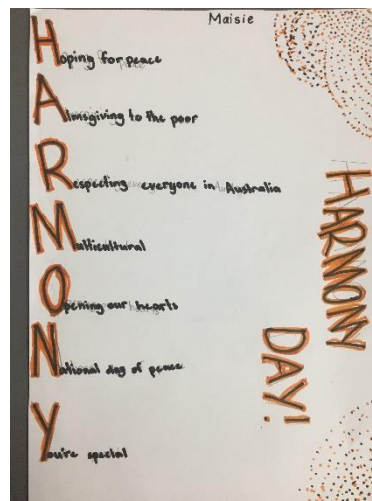 Maisie
Hoping for peace
Almsgiving to the poor
Respecting everyone in Australia
Multicultural
Opening our hearts
National day of peace
You're special
HARMONY
DAY!